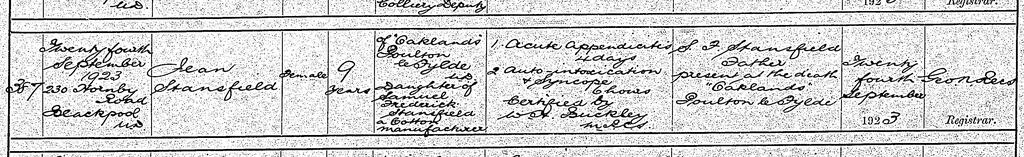 U.D.
Colliery Deputy
192
Registrar.
Twenty fourth
September
1923
230 Hornby
Road
Blackpool
U.D.
Jean
Stansfield
Female
9
years
of "Oaklands"
Poulton
le Fylde
U.D.
Daughter of
Samuel
Frederick
Stansfield
a Cotton
manufacturer
1 Acute Appendicitis
4 days
2 Auto intoxication
& Syncope
hours
Certified by
Buckley
M.R.C.S.
S. F. Stansfield
Father
present at the death
"Oaklands"
Poulton le Fylde
Twenty
fourth
September
1923
Registrar.